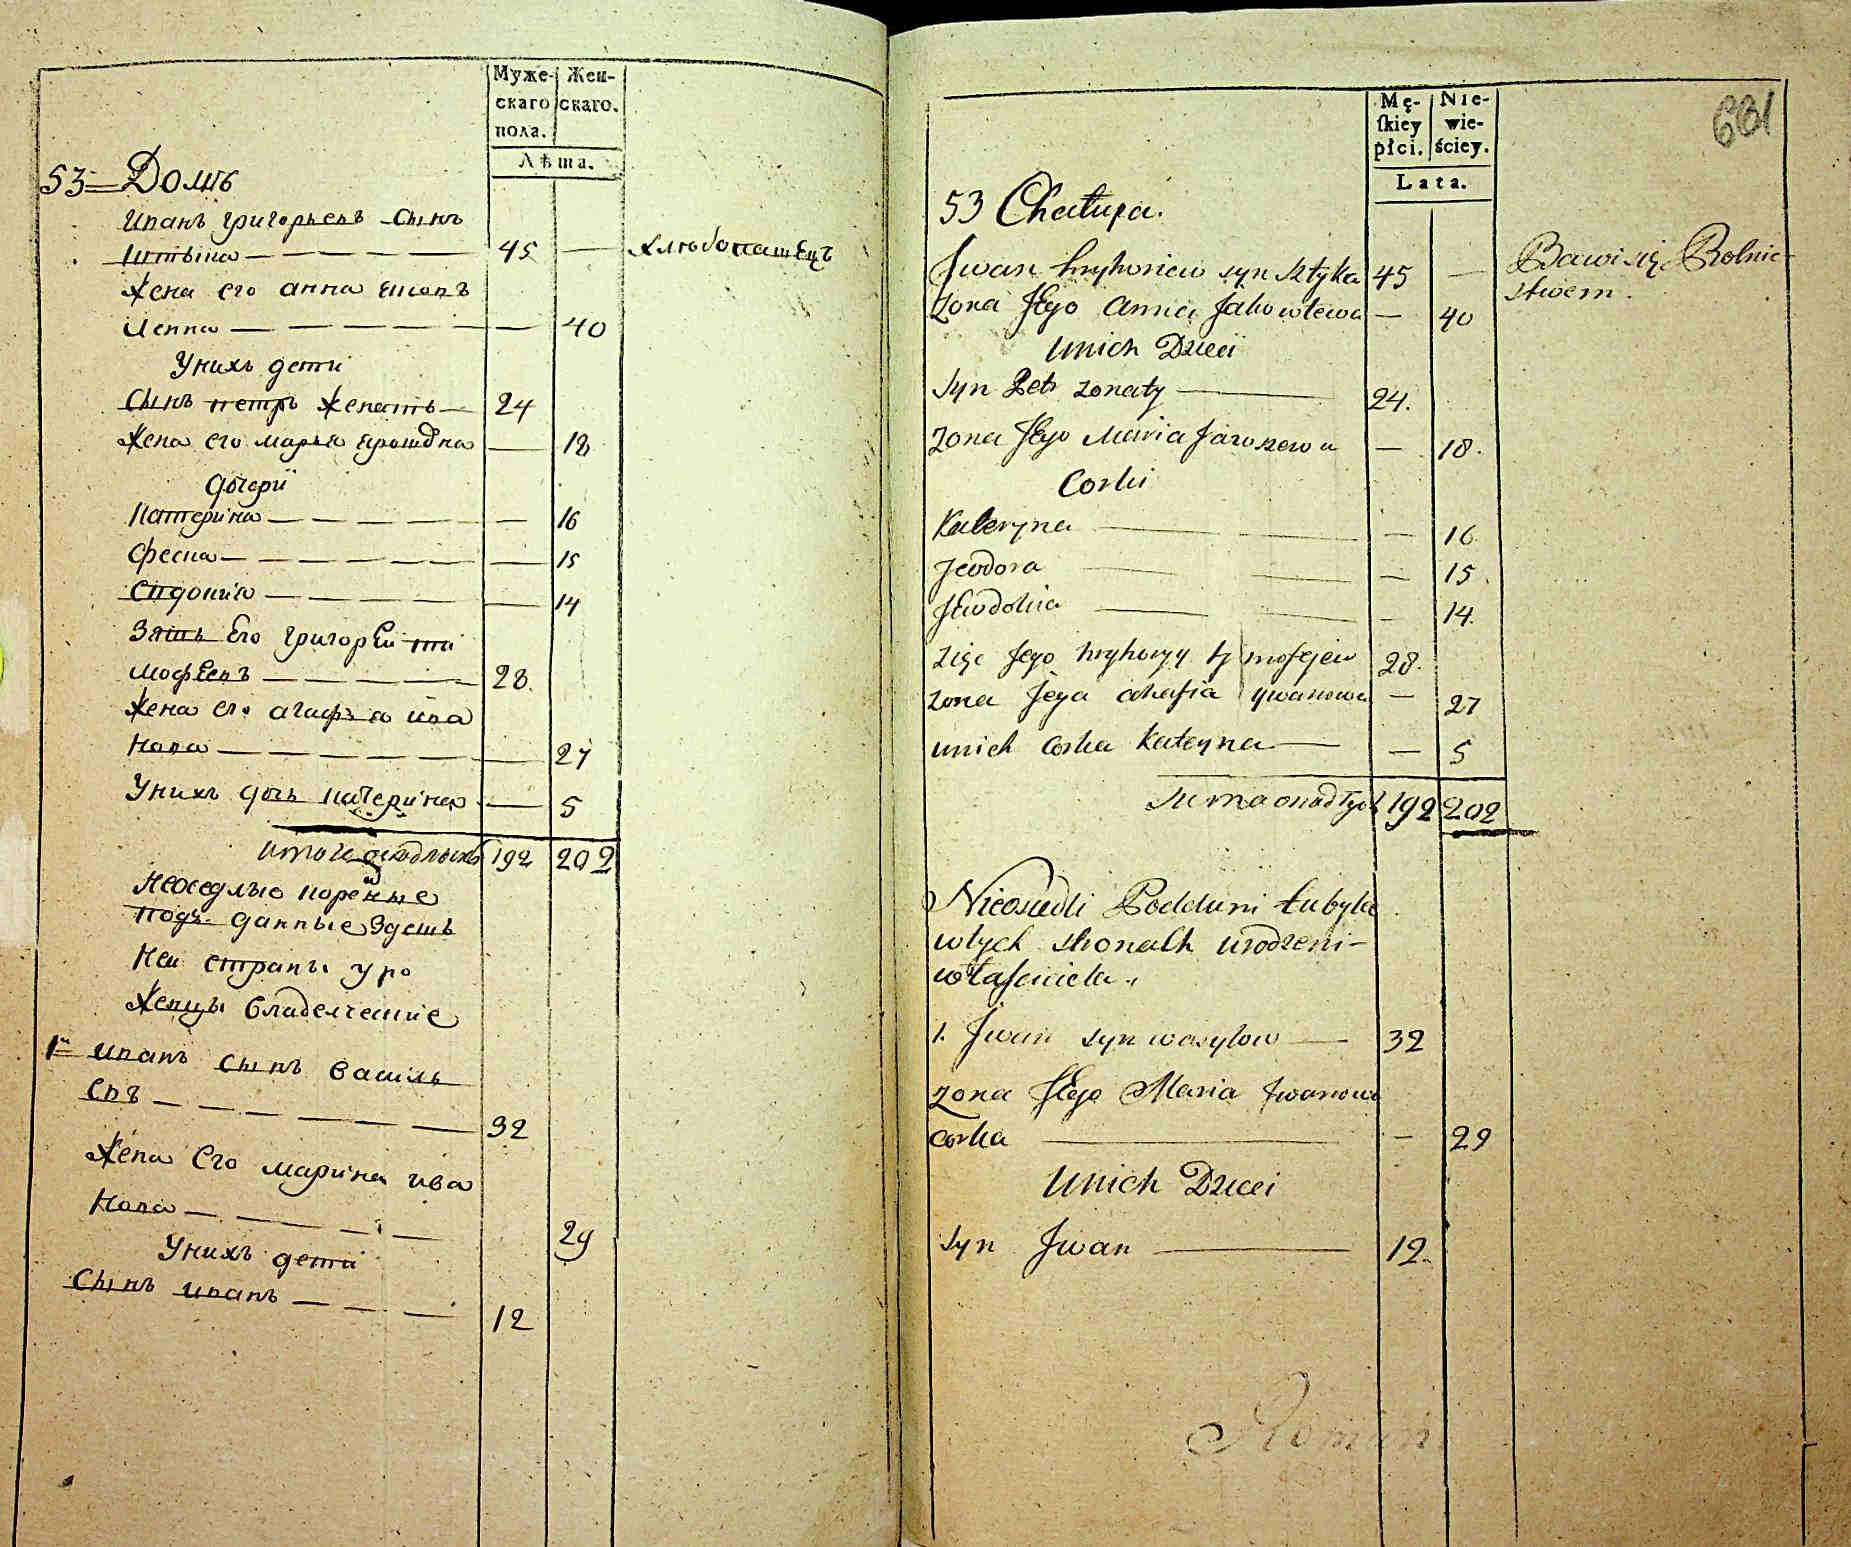 Муже-
скаго
пола.
Жен-
скаго.
Лѣта.
53 Домъ
Иванъ григорьевъ сынъ
штыка 45 хлѣбопашецъ
Жена его анна яков
левна 40
У нихъ дети
Сынъ петръ женатъ 24
Жена его марья ярошова 18
дочери
катерина 16
феска 15
Евдокия 14
Зять Его григорей ти
мофеевъ 28.
Жена его агафья ива
нова 27
У нихъ дочь катерина 5
итого оседлыхъ 192 202
Неоседлыю коренные
подъ данные здешъ
ней страны уро
женцы владелческие
1й иванъ сынъ василь
евъ 32
Жена Его марина ива
нова 29
У нихъ дети
Сынъ иванъ 12
Mę-
skiey
płci.
Nie-
wie-
ściey.
Lata.
661
53 Chałupa.
Jwan hryhoriew syn Sztyka 45 Bawi się Rolnic-
stwem.
Zona Jego Anna Jakowlewa 40
Unich Dzieci
Syn Petr zonaty 24.
Zona Jego Maria Jaroszewa 18.
Corki
Kateryna 16.
Feodora 15.
Jewdokia 14.
Zięć Jego hryhory tymofejew 28.
Zona Jega ahafia ywanowa 27
unich corka Kateryna 5
Suma osiadłych 192 202
Nieosiedli Poddani
wtych stronach urodzeni-
własciciela.
1. Jwan syn wasylow 32
Zona Jego Maria Jwanowa
corka 29
Unich Dzieci
Syn Jwan 12.